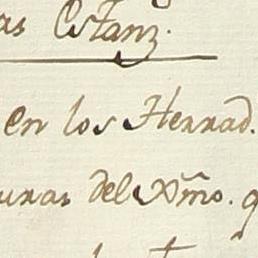 as Estanz.
en los Herrad.
unas del Xm̃o. q